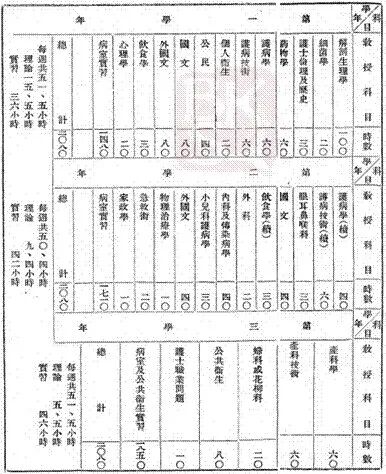 學年
科目
教授科目
時數
第一學年
解剖生理學 一〇〇
細菌學 二〇
護士倫理及歷史 三〇
藥物學 六〇
護病學 六〇
護病技術 六〇
個人衛生 二〇
公民 四〇
國文 八〇
外國文 八〇
飲食學 三〇
心理學 二〇
病室實習 一四八〇
總計 二〇八〇
每週共五一、五小時
理論一五、五小時
實習 三六小時
學年
科目
教授科目
時數
第二學年
護病學(續) 四〇
護病技術(續) 六〇
眼耳鼻喉科 三〇
國文 四〇
飲食學(續) 三〇
外科 二〇
內科及傳染病學 四〇
小兒科護病學 三〇
外國文 四〇
物理治療學 一〇
急救術 二〇
家政學 一〇
病室實習 一七一〇
總計 二〇八〇
每週共五〇、四小時
理論 九、四小時
實習 四二小時
學年
科目
教授科目
時數
第三學年
產科學 六〇
產科技術 六〇
婦科或花柳科 二〇
公共衛生 八〇
護士職業問題 一〇
病室及公共衛生實習 一八五〇
總計 二〇八〇
每週共五一、五小時
理論 五、五小時
實習 四六小時